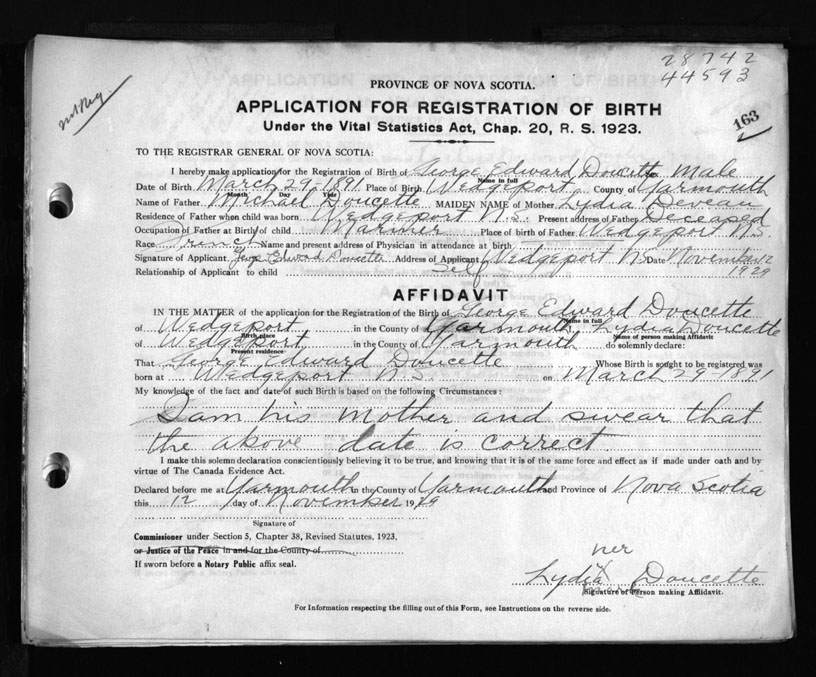 28742
44593
PROVINCE OF NOVA SCOTIA.
163
APPLICATION FOR REGISTRATION OF BIRTH
Under the Vital Statistics Act, Chap. 20, R. S. 1923.
TO THE REGISTRAR GENERAL OF NOVA SCOTIA:
I hereby make application for the Registration of Birth of George Edward Doucette Male
Name in full
Date of Birth March 29-1891 Place of Birth Wedgeport County of Yarmouth
Month Day Year
Name of Father Michael Doucette MAIDEN NAME of Mother Lydia Deveau
Residence of Father when child was born Wedgeport N.S. Present address of Father Deceased
Occupation of Father at Birth of child Mariner Place of birth of Father Wedgeport N.S.
Race French Name and present address of Physician in attendance at birth
Signature of Applicant Edward Doucette Address of Applicant Wedgeport N.S. Date November 12
1929
Relationship of Applicant to child Self
AFFIDAVIT
IN THE MATTER of the application for the Registration of the Birth of George Edward Doucette
Name in full
of Wedgeport in the County of Yarmouth I, Lydia Doucette
Birth place Name of person making Affidavit
of Wedgeport in the County of Yarmouth do solemnly declare:
Present residence
That George Edward Doucette Whose Birth is sought to be registered was
born at Wedgeport N.S. on March 29-1891
My knowledge of the fact and date of such Birth is based on the following Circumstances:
I am his mother and swear that
the above date is correct.
I make this solemn declaration conscientiously believing it to be true, and knowing that it is of the same force and effect as if made under oath and by
virtue of The Canada Evidence Act.
Declared before me at Yarmouth in the County of Yarmouth and Province of Nova Scotia
this 12 day of November 1929
Signature of
Commissioner under Section 5, Chapter 38, Revised Statutes, 1923,
or Justice of the Peace in and for the County of
If sworn before a Notary Public affix seal.
her
Lydia X Doucette
Signature of Person making Affidavit.
For Information respecting the filling out of this Form, see Instructions on the reverse side.